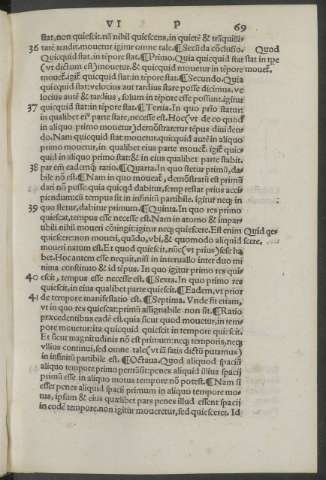 VI P 69
stat, non quiescit. nā nihil quiescens, in quiete & trāquilli
36 tate tendit. mouetur igitur omne tale. ¶Secūda cōclusio. Quod
Quicquid stat, in tēpore stat. ¶Primo. Quia quicquid stat stat in tpe
(vt dictum est) mouetur. & quicquid mouetur in tēpore mouet̄.
mouet̄. igit̄ quicquid stat: in tēpore stat. ¶Secundo. Quia
quicquid stat: velocius aut tardius stare posse dicimus. ve
locius autē & tardius, solum in tēpore esse possunt. igitur
37 quicquid stat: in tēpore stat. ¶Tertia. In quo prīo statur:
in qualibet ei⁹ parte stare, necesse est. Hoc (vt de eo quod
in aliquo primo mouetur) demōstraretur tēpus diuiden
do. Nam quicquid stat mouetur. quicquid autē in aliquo
primo mouetur, in qualibet eius parte mouet̄. igit̄ quic
quid in aliquo primo stat: & in eius qualibet parte stabit.
38 par em̄ eademq̨ ratio. ¶Quarta. In quo stetur primū, da
bile nō est. Nam in quo mouet̄, demōstratū est primū
dari nō posse. quia quicqd dabitur, semp restat prius acci
piendum: cū tempus sit in infinitū partibile. igitur neq̨ in
39 quo stetur, dabitur primum. ¶Quinta. In quo res primo
quiescat, tempus esse necesse est. Nam in atomo & impar
tibili nihil moueri cōtingit: igitur neq̨ quiescere. Est enim Quid qes
quiescere: non moueri, quādo, vbi, & quomodo aliquid scere.
moueri natum est. Et quod quiescit, nūc (vt prius) sese ha
bet. Hoc autem esse nequit, nisi in interuallo inter duo mi
nima constituto & id tēpus. In quo igitur primo res qui
40 escit, tempus esse necesse est. ¶Sexta. In quo primo res
quiescit, in eius qualibet parte quiescit. ¶Eadem, vt prior
41 de tempore manifestatio est. ¶Septima. Vnde fit etiam,
vt in quo res quiescat: primū assignabile non sit. ¶Ratio
præcedentibus cadē est. quia sicut quod mouetur, in tem
pore mouetur: ita quicquid quiescit in tempore quiescit.
Et sicut magnitudinis nō est primum: neq̨ temporis, neq̨
vllius continui, sed omne tale (vt iā satis dictū putamus)
in infinitū partibile est. ¶Octaua. Quod aliquod spacij
aliquo tempore primo pertrāsit: penes aliquid illius spacij
primū esse in aliquo motus tempore nō potest. ¶Nam si
esset penes aliquid spacij primum in aliquo tempore mo
tus, ipsum & eius qualibet pars penes illud essent spacij
in eodē tempore. non igitur moueretur, sed quiesceret. Id